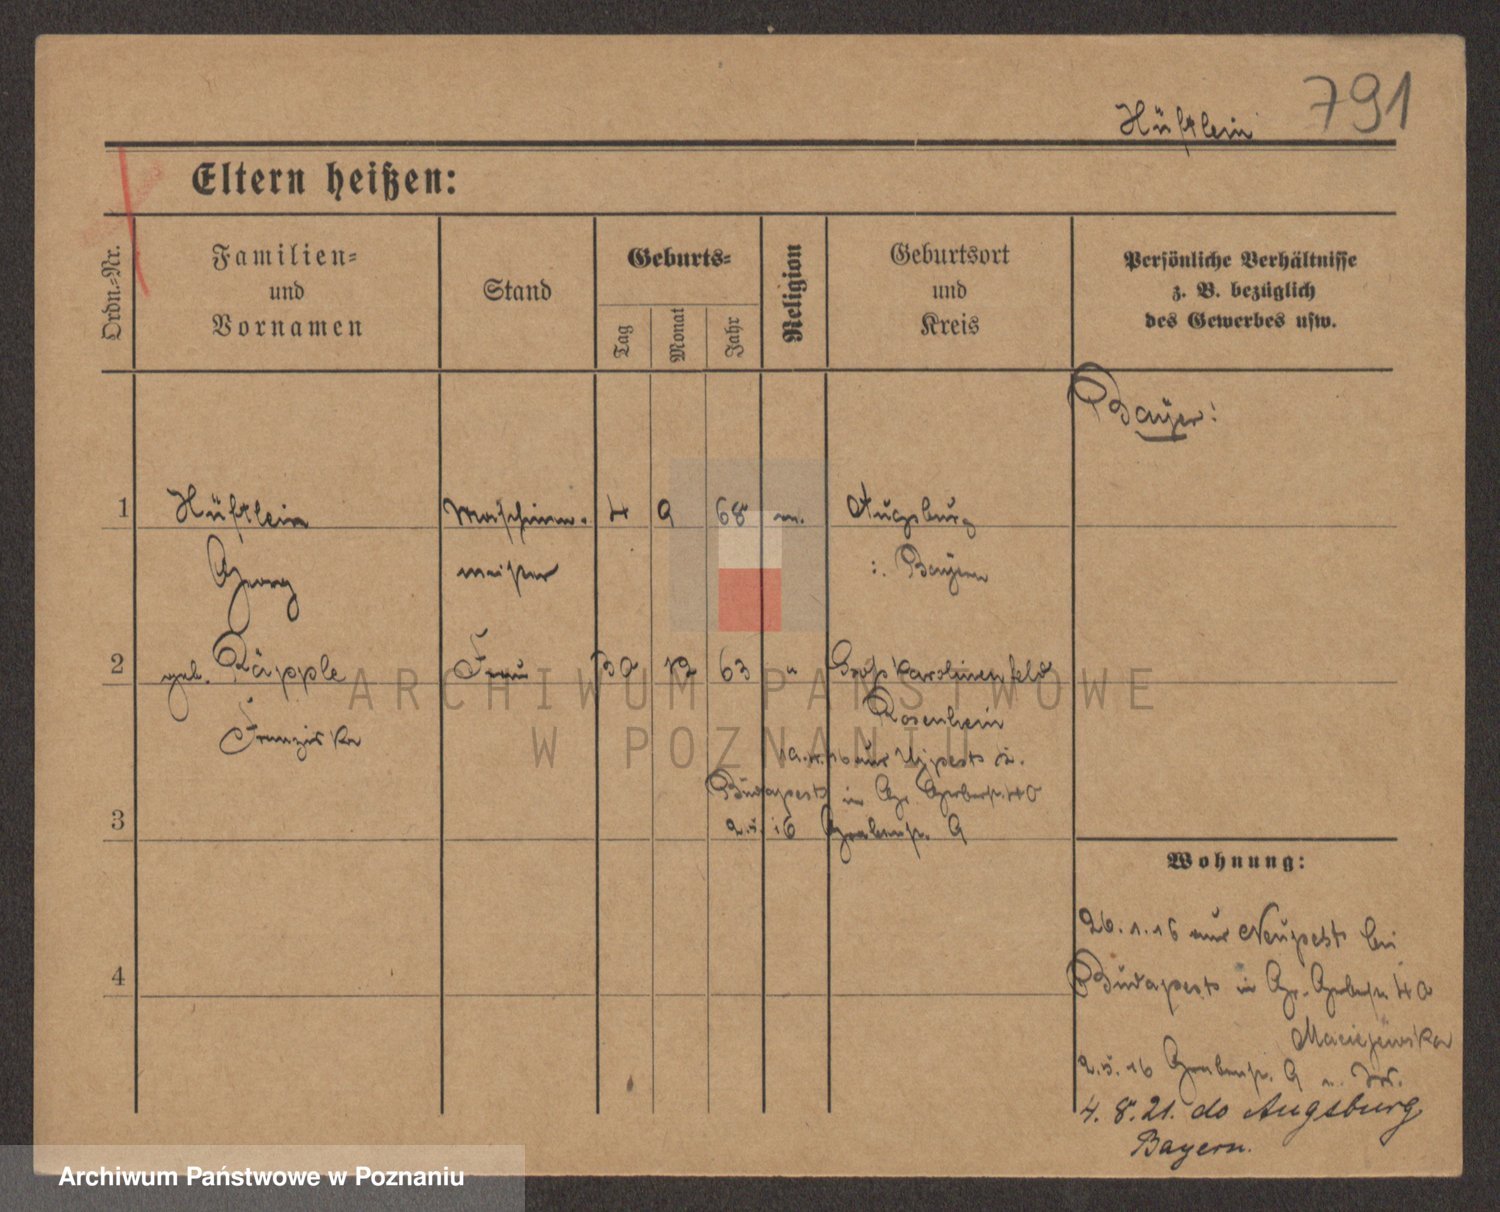 791
Hüftlein
Eltern heißen:
Ordn.-Nr.
Familien-
und
Vornamen
Stand
Geburts-
Tag
Monat
Jahr
Religion
Geburtsort
und
Kreis
Persönliche Verhältnisse
z. B. bezüglich
des Gewerbes usw.
Bayer:
1 Hüftlein Maschinen- 4 9 68 Augsburg
Georg meister Bayern
2 geb. Räpple Frau 12 63 " Großkarolinenfeld
Franziska Rosenheim
aus Ujpest
Budapest in Gr. Gerberstr. 40
3 2.5.16 Grabenstr. 9
Wohnung:
26.1.16 aus Neupest bei
4 Budapest in Gr. Gerberstr. 40
Maciejewska
2.5.16 Grabenstr. 9
4. 8. 21. do Augsburg
Bayern.
ARCHIWUM PAŃSTWOWE
W POZNANIU
Archiwum Państwowe w Poznaniu